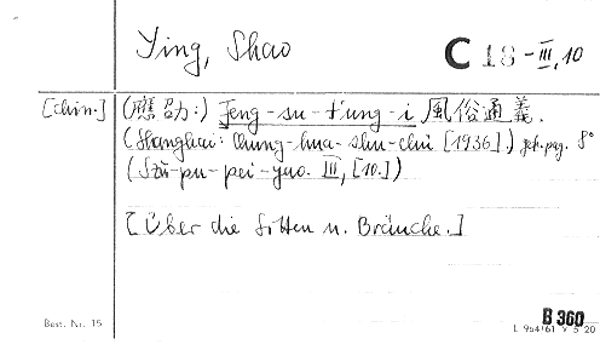 Ying, Shao
C 18 - III, 10
[chin.] (應劭:) Feng-su-t'ung-i 風俗通義.
(Shanghai: Chung-hua-shu-chü [1936].) geh. pag. 8°
(Szŭ-pu-pei-yao. III, [10.])
[Über die Sitten u. Bräuche.]
B 360
Best. Nr. 15
L 964/61 V 5 20